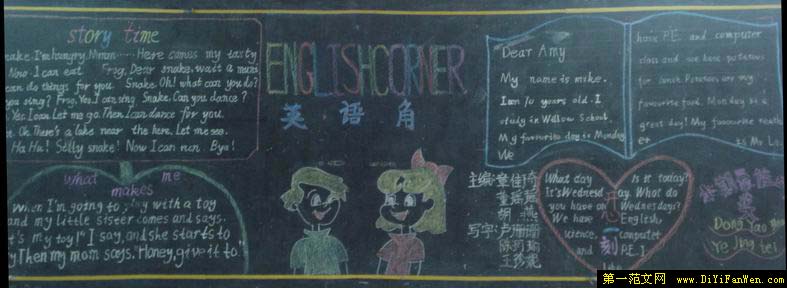 story time
snake. I'm hungry. Nmm...... Here comes my tasty
Now I can eat Frog, Dear snake. wait a
can do things for you. Snake. Oh! what can you do?
you sing? Frog. Yes. I can sing Snake. Can you dance?
Yes. I can. Let me go. Then I can dance for you.
Oh. There's a lake near the here. Let me see.
Ha Ha! Silly snake! Now I can run. Bye!
what makes me
When I'm going to play with a toy
and my little sister comes and says.
It's my toy!" I say, and she starts to
Then my mom says. "Honey, give it to."
ENGLISHCORNER
英语角
Dear Amy
My name is mike.
I am 10 years old. I
study in Willow School.
My favourite day is Monday
We
have P.E. and computer
class and we have potatoes
for lunch Potatoes are my
favourite food. Monday is a
great day! My favourite
is Mr
主编:章佳琦
董瑶瑶
胡燕
写字:卢珊珊
陈莉瑜
王莎妮
What day is it today?
It's Wednesday. What do
you have on Wednesdays?
We have English,
science, computer
and P.E. I
一刻
Dong Yao
Ye Jing
第一范文网 www.DiYiFanWen.com